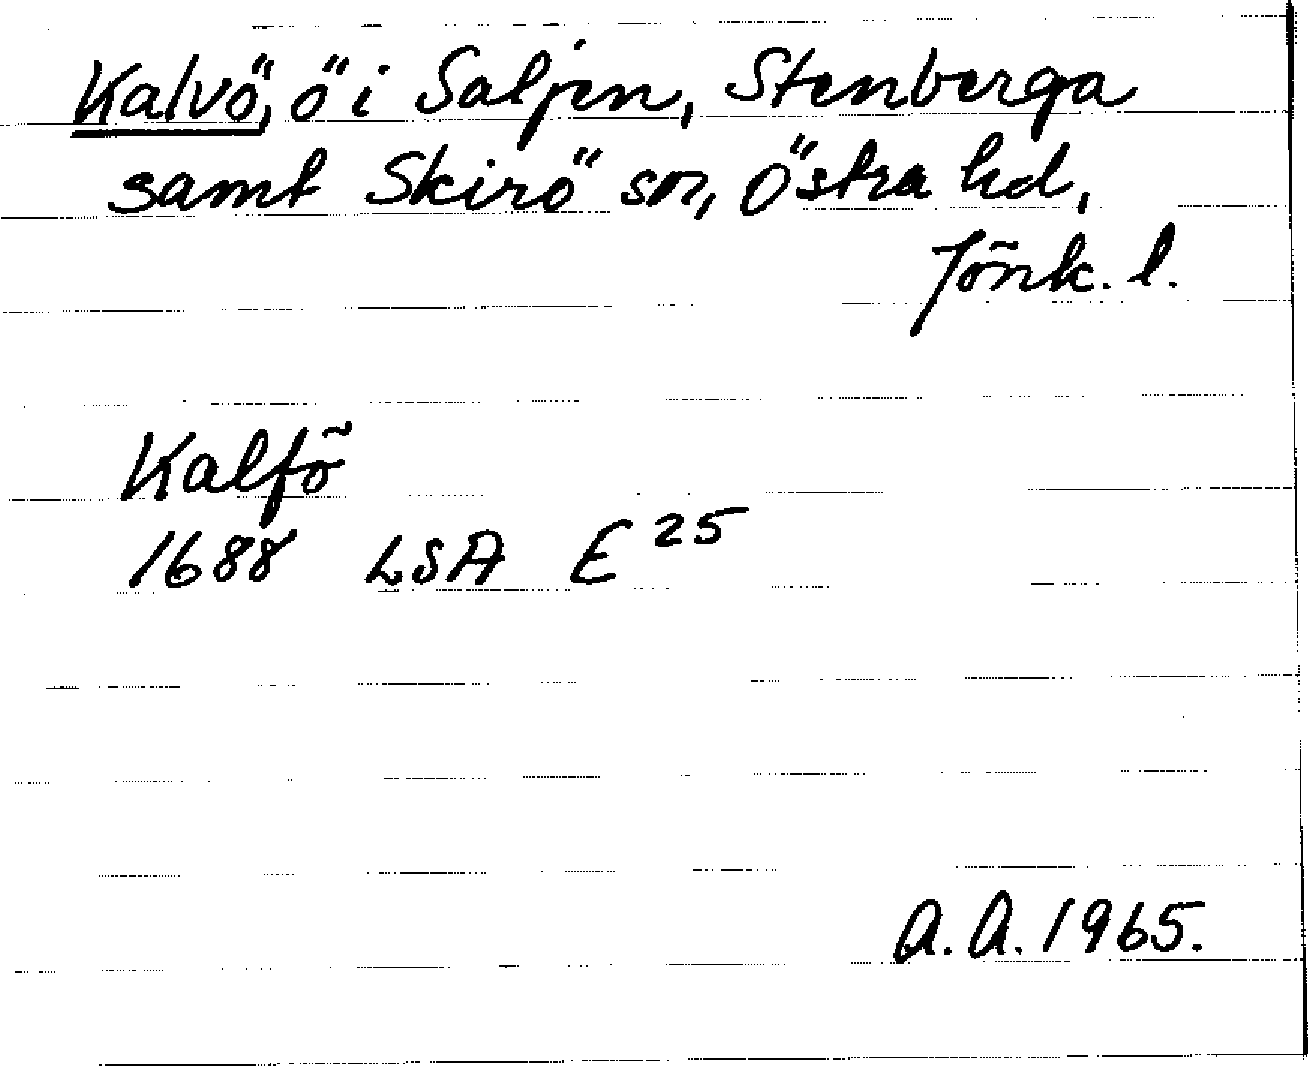 Kalvö, ö i Saljen, Stenberga
samt Skirö snr, Östra hd,
Jönk. l.
Kalfö
1688 LSA E 25
A. A. 1965.